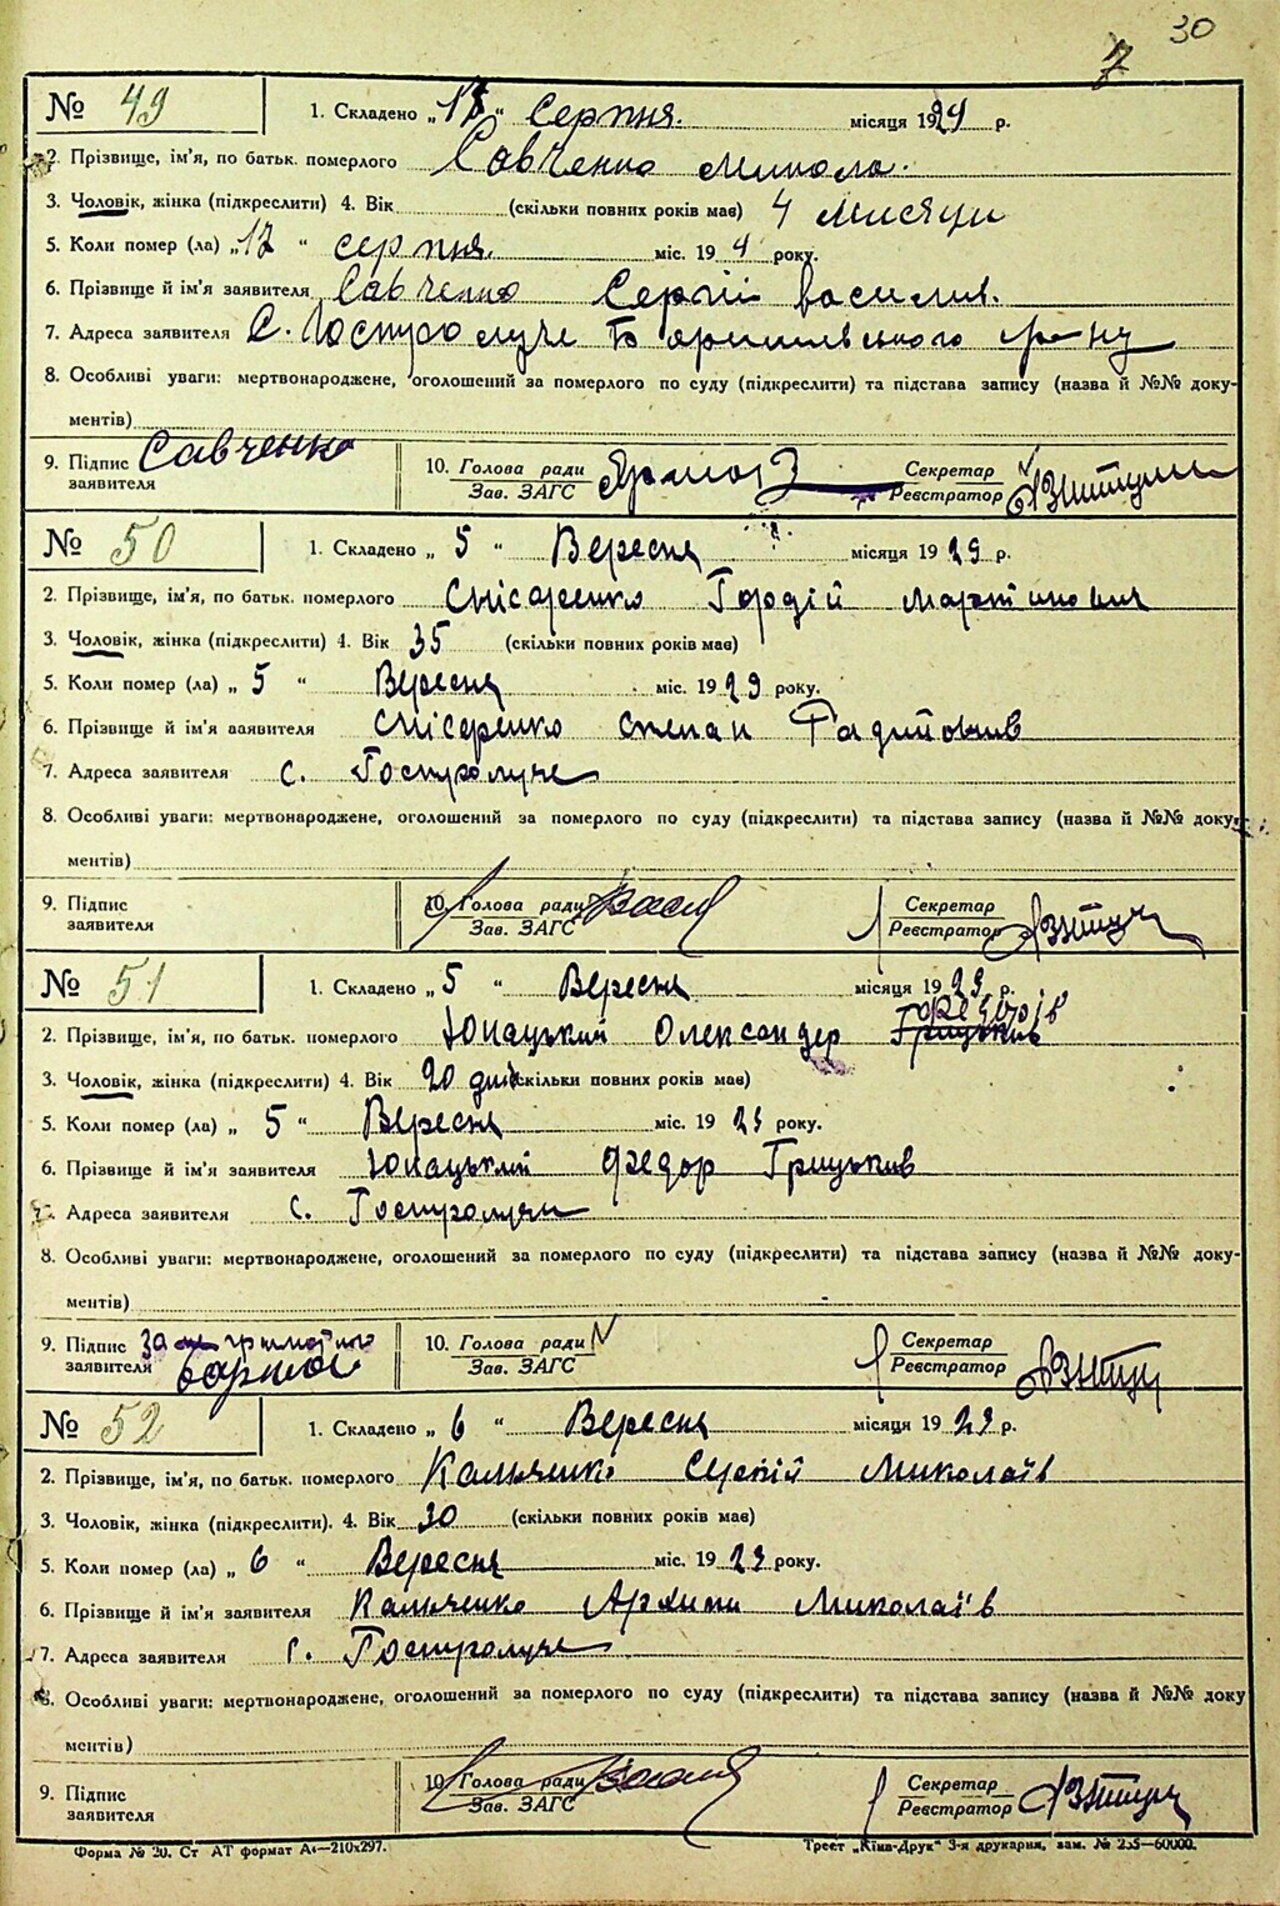 30
7
№ 49 1. Складено „17“ Серпня. місяця 1929 р.
2. Прізвище, ім'я, по батьк. померлого Савченко Микола.
3. Чоловік, жінка (підкреслити) 4. Вік (скільки повних років має) 4 мисяци
5. Коли помер (ла) „17“ серпня. міс. 19 року.
6. Прізвище й ім'я заявителя Савченко Сергій Василив.
7. Адреса заявителя С. Гостролуче району
8. Особливі уваги: мертвонароджене, оголошений за померлого по суду (підкреслити) та підстава запису (назва й №№ доку-
ментів)
9. Підпис заявителя Савченко 10. Голова ради Секретар
Зав. ЗАГС Реєстратор
№ 50 1. Складено „5“ Вересня місяця 1929 р.
2. Прізвище, ім'я, по батьк. померлого Снісаренко Гордій Мартинович
3. Чоловік, жінка (підкреслити) 4. Вік 35 (скільки повних років має)
5. Коли помер (ла) „5“ Вересня міс. 1929 року.
6. Прізвище й ім'я заявителя Снісаренко Степан
7. Адреса заявителя с. Гостролуче
8. Особливі уваги: мертвонароджене, оголошений за померлого по суду (підкреслити) та підстава запису (назва й №№ доку-
ментів)
9. Підпис заявителя 10. Голова ради Секретар
Зав. ЗАГС Реєстратор
№ 51 1. Складено „5“ Вересня місяця 1929 р.
Федорів
2. Прізвище, ім'я, по батьк. померлого Юнацький Олександер Грицьков
3. Чоловік, жінка (підкреслити) 4. Вік 20 днів (скільки повних років має)
5. Коли помер (ла) „5“ Вересня міс. 1929 року.
6. Прізвище й ім'я заявителя Юнацький Федор Грицьков
7. Адреса заявителя с. Гостролуче
8. Особливі уваги: мертвонароджене, оголошений за померлого по суду (підкреслити) та підстава запису (назва й №№ доку-
ментів)
9. Підпис заявителя За неграмотного 10. Голова ради Секретар
Зав. ЗАГС Реєстратор
№ 52 1. Складено „6“ Вересня місяця 1929 р.
2. Прізвище, ім'я, по батьк. померлого Кальченко Миколаїв
3. Чоловік, жінка (підкреслити). 4. Вік 30 (скільки повних років має)
5. Коли помер (ла) „6“ Вересня міс. 1929 року.
6. Прізвище й ім'я заявителя Кальченко Архип Миколаїв
7. Адреса заявителя с. Гостролуче
8. Особливі уваги: мертвонароджене, оголошений за померлого по суду (підкреслити) та підстава запису (назва й №№ доку
ментів)
9. Підпис заявителя 10. Голова ради Секретар
Зав. ЗАГС Реєстратор
Форма № 20. Ст АТ формат А4—210x297. Трест „Київ-Друк“ 3-я друкарня, зам. № 255—60000.